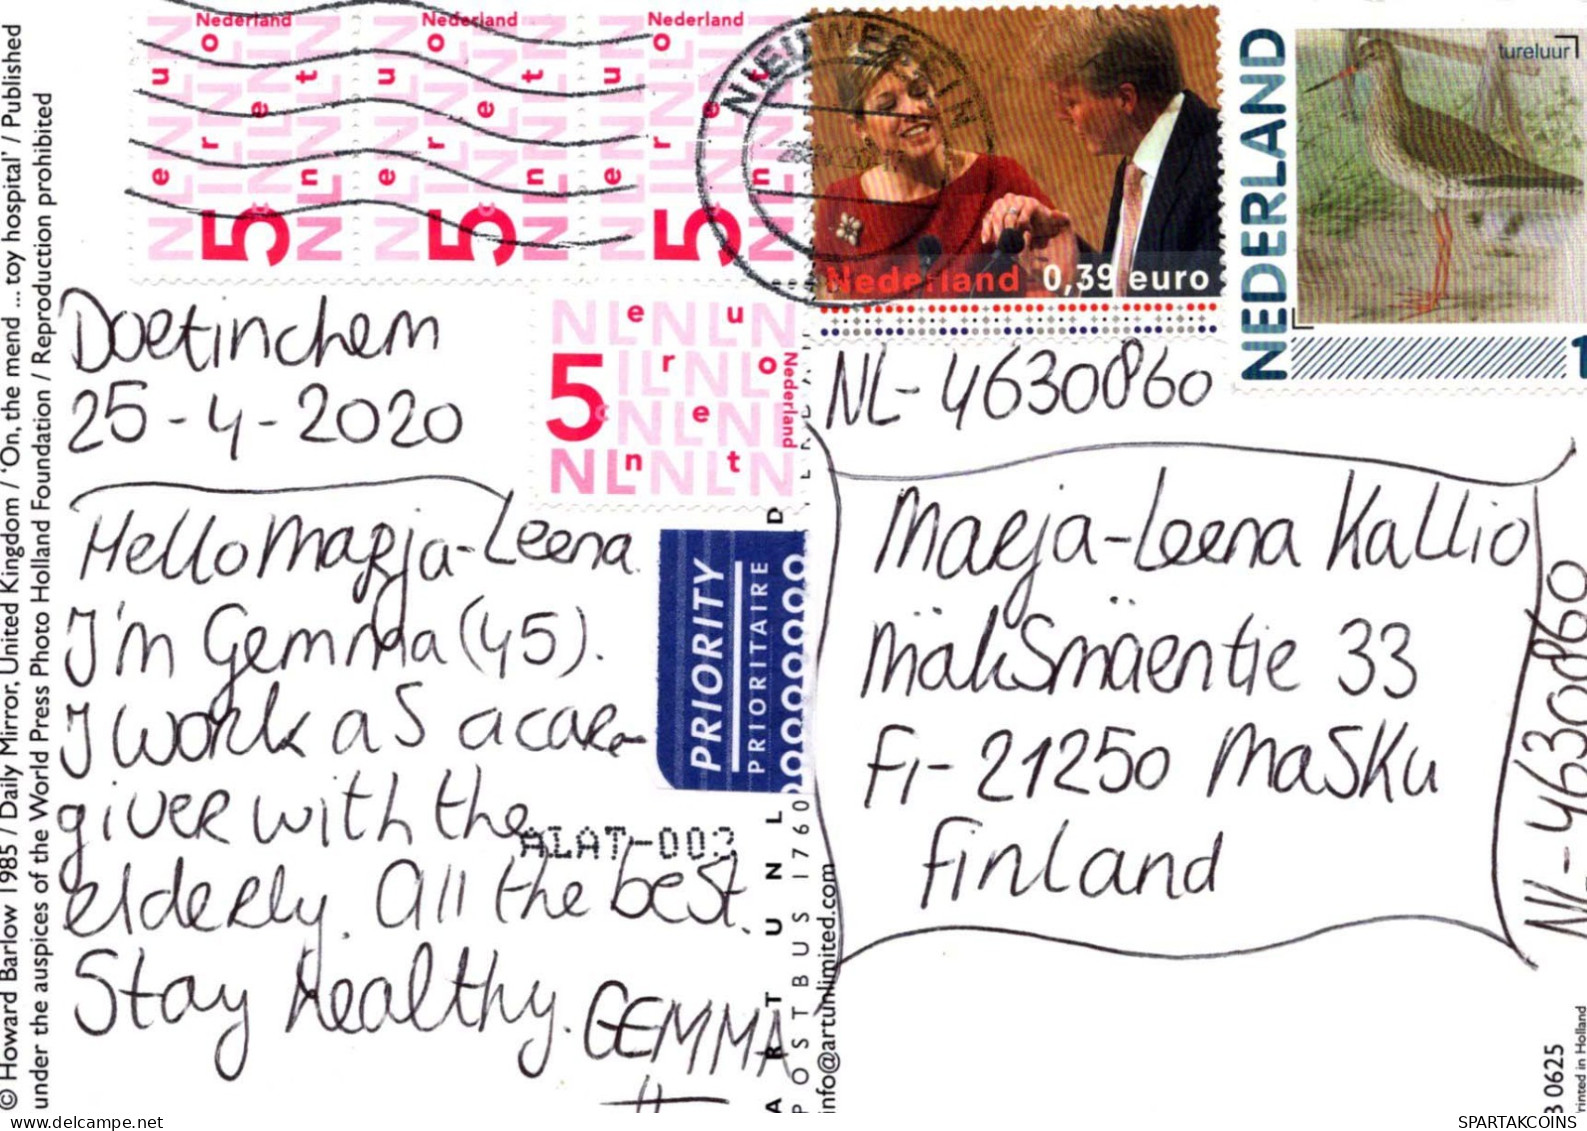 Nederland
Nederland
Nederland
euro
cent
5
euro
cent
5
euro
cent
5
NIEUWEGEIN
Nederland 0,39 euro
NEDERLAND
tureluur
1
5
euro
cent
Nederland
Doetinchem
25-4-2020
Hello Marja-Leena.
I'm Gemma (45).
I work as a care-
giver with the
elderly. All the best.
Stay healthy. GEMMA
PRIORITY
PRIORITAIRE
ALAT-002
NL-4630860
Marja-Leena Kallio
Mäksmäentie 33
FI-21250 Masku
Finland
NL-4630860
© Howard Barlow 1985 / Daily Mirror, United Kingdom / 'On, the mend ... toy hospital' / Published
under the auspices of the World Press Photo Holland Foundation / Reproduction prohibited
ART UNL
POSTBUS 1760
info@artunlimited.com
B 0625
Printed in Holland
www.delcampe.net
SPARTAKCOINS